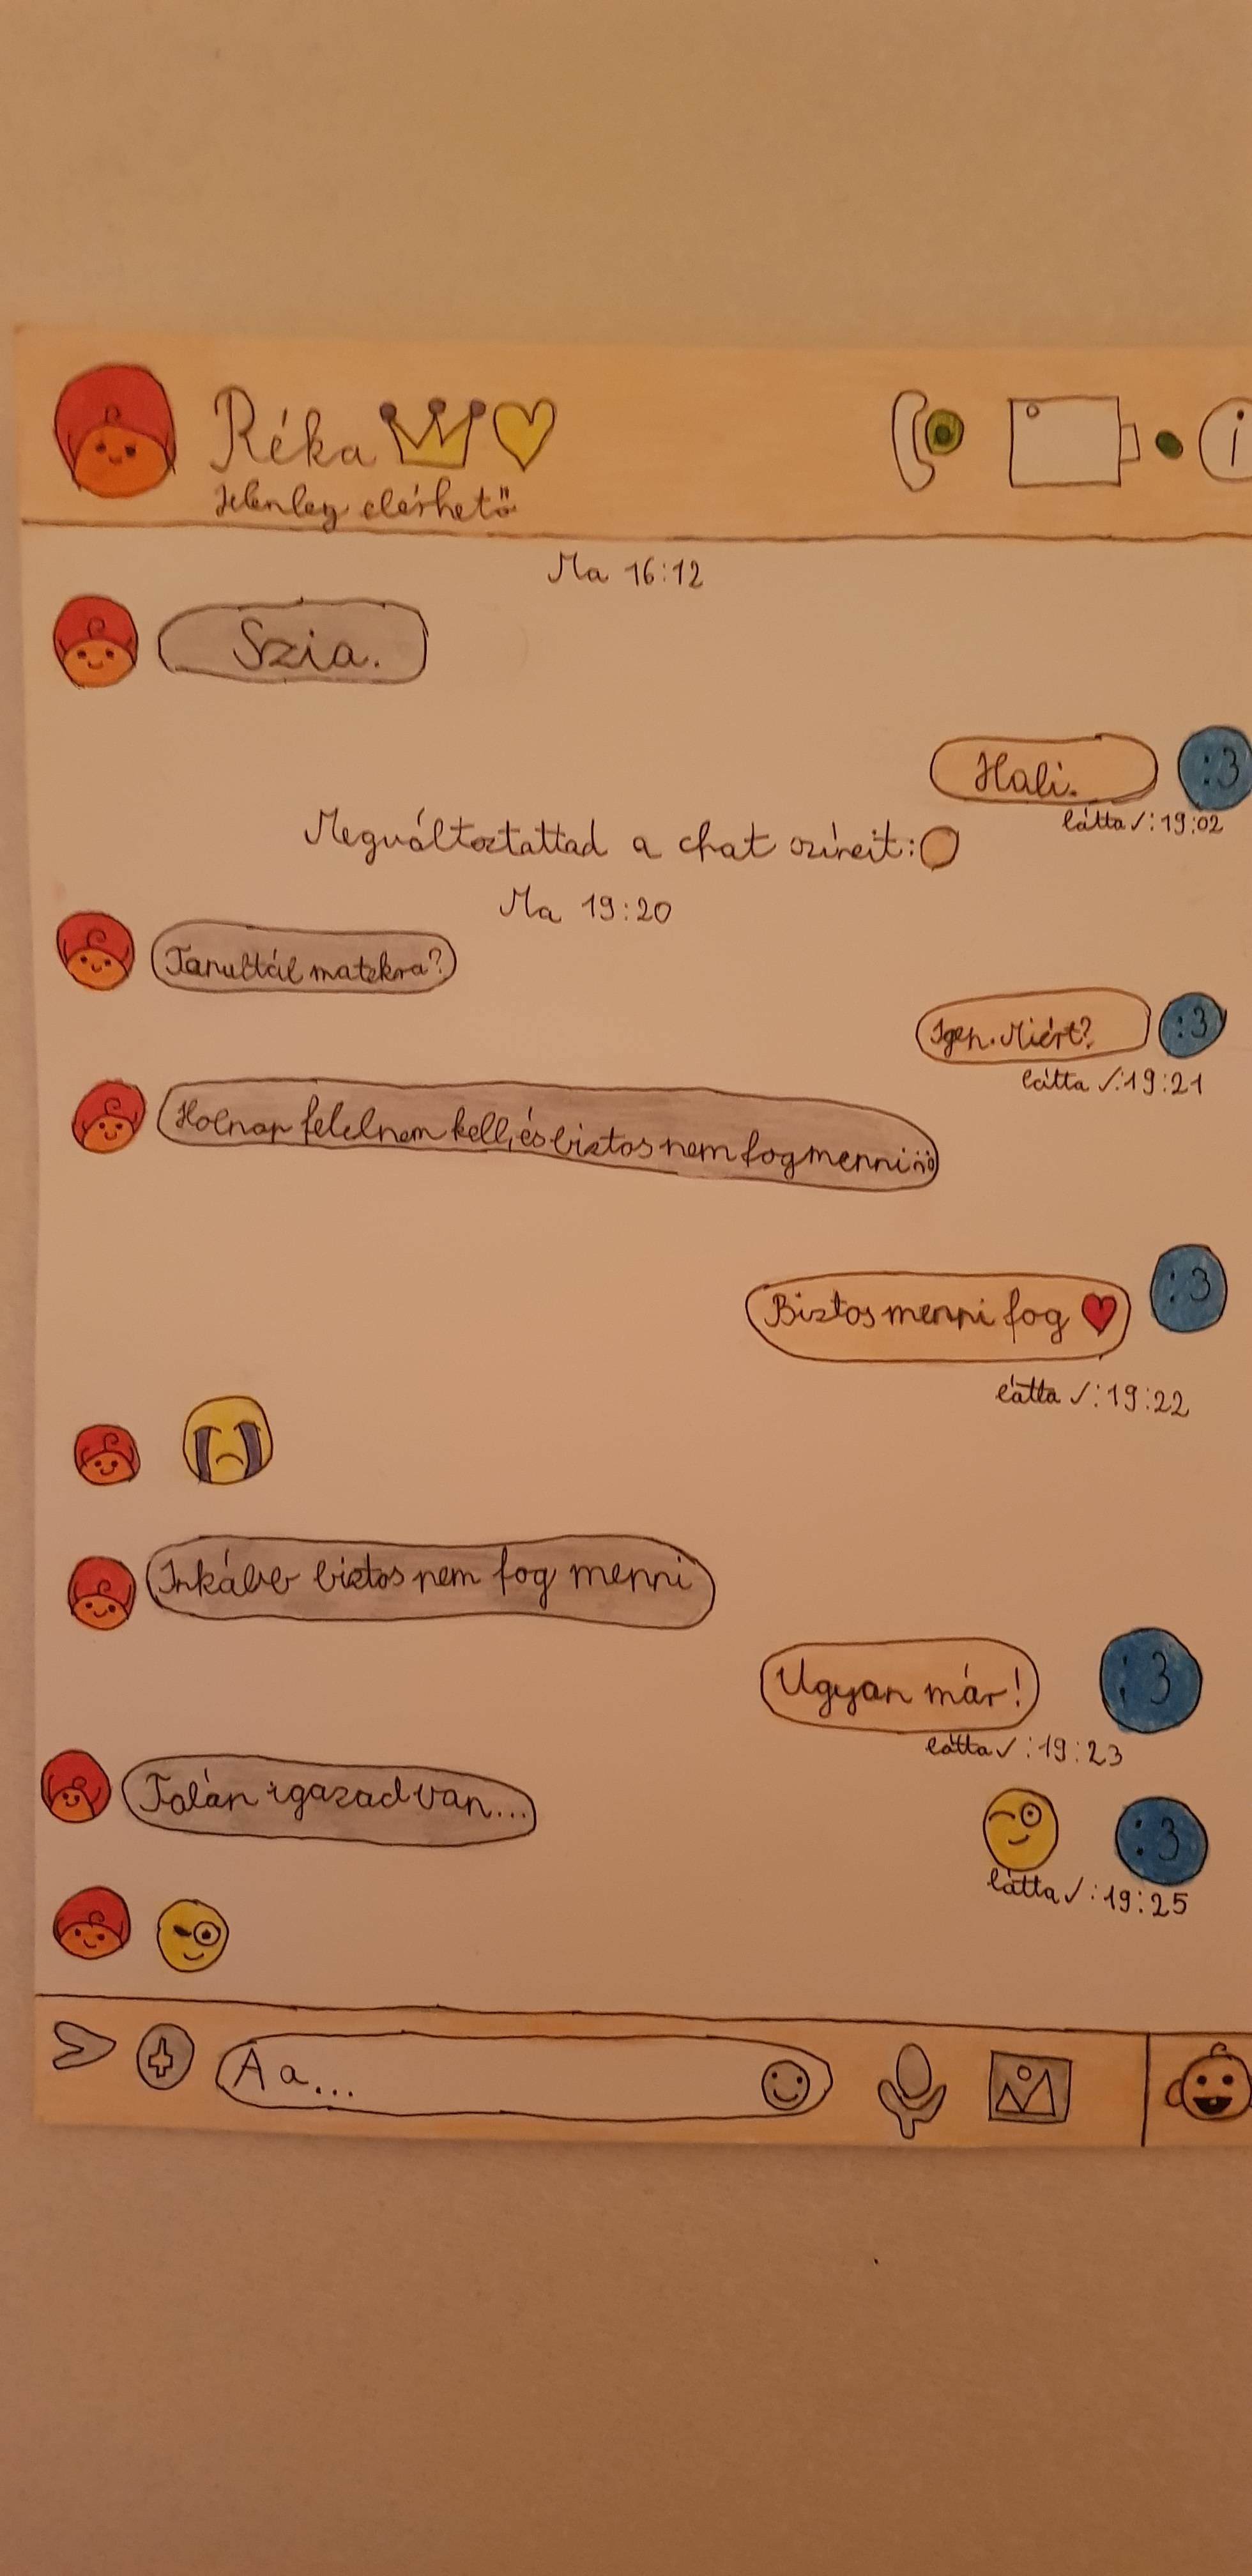 Réka
Jelenleg elérhető
i
Ma 16:12
Szia.
Hali.
:3
látta ✓: 19:02
Megváltoztattad a chat színeit:
Ma 19:20
Tanultál matekra?
Igen. Miért?
:3
látta ✓: 19:21
Holnap felelnem kell, és biztos nem fog menni
Biztos menni fog
:3
látta ✓: 19:22
Inkább biztos nem fog menni
Ugyan már!
:3
látta ✓: 19:23
Talán igazad van...
:3
látta ✓: 19:25
Aa...